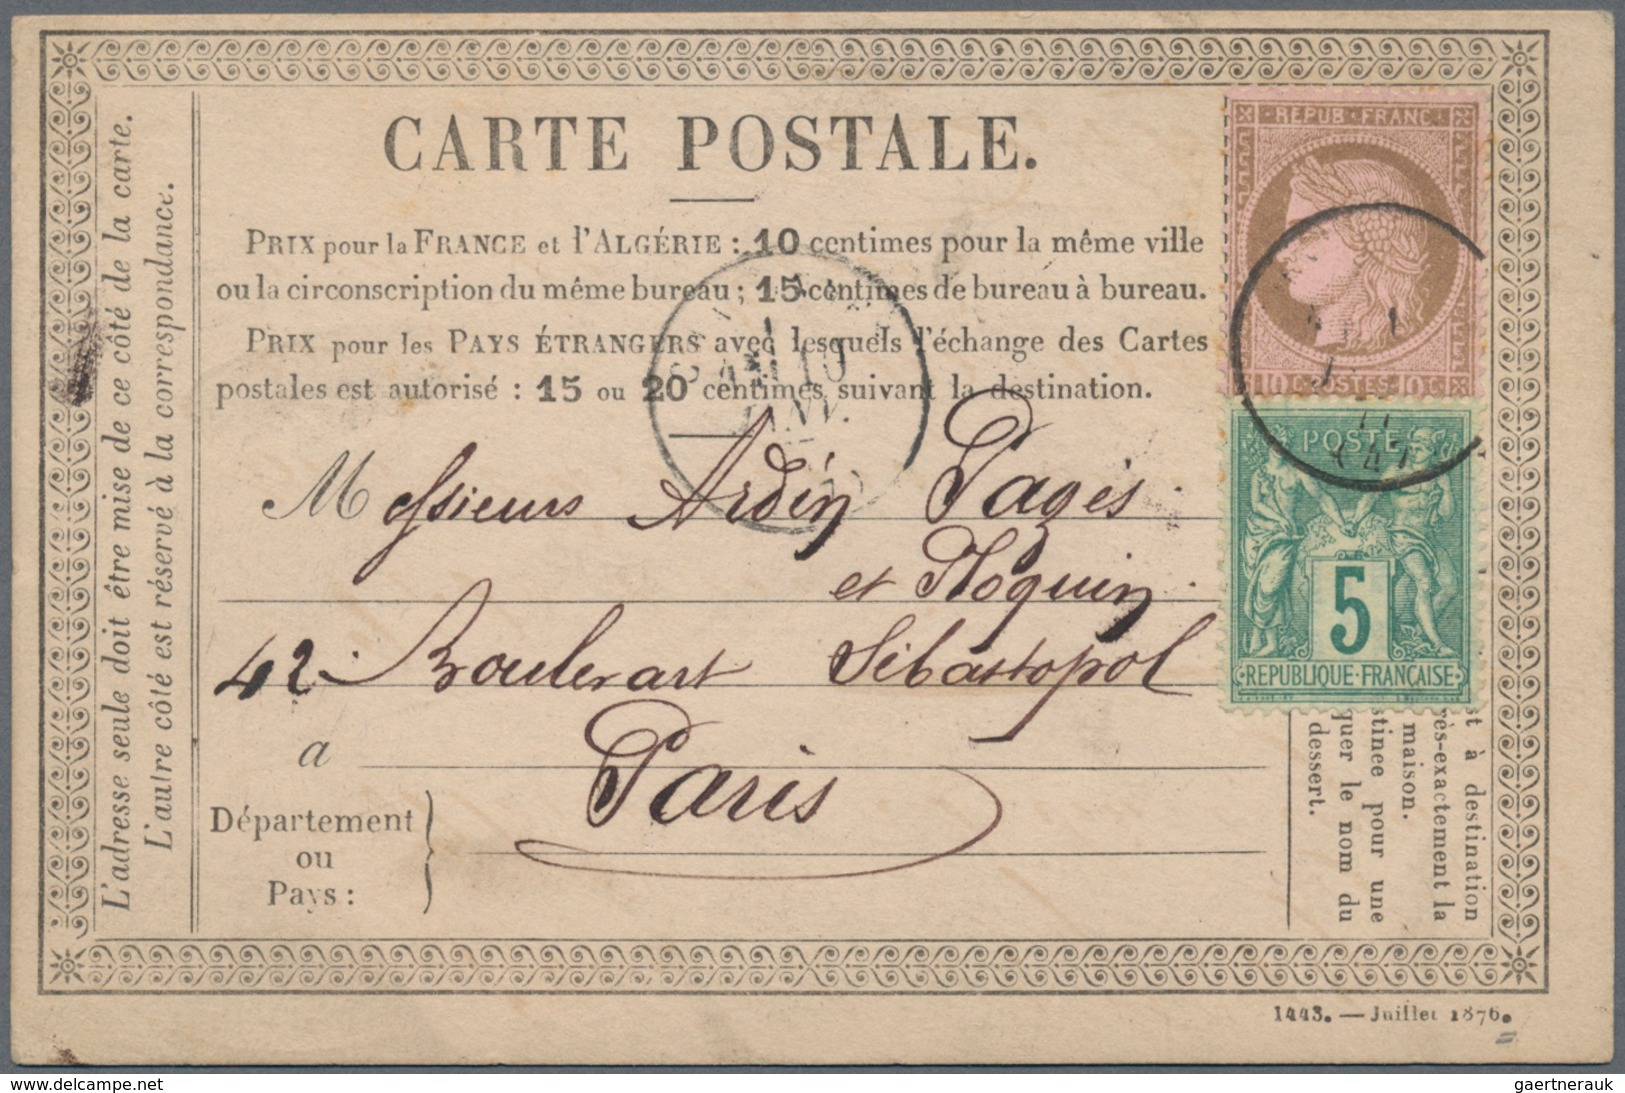 CARTE POSTALE.
PRIX pour la FRANCE et l'ALGÉRIE : 10 centimes pour la même ville
ou la circonscription du même bureau ; 15 centimes de bureau à bureau.
PRIX pour les PAYS ÉTRANGERS avec lesquels l'échange des Cartes
postales est autorisé : 15 ou 20 centimes suivant la destination.
Messieurs Ardin Pagès
et
42 Boulevart Sébastopol
a Paris
Département
ou
Pays :
L'adresse seule doit être mise de ce côté de la carte.
L'autre côté est réservé à la correspondance.
REPUB FRANC
10 C. POSTES 10 C.
POSTE
5
REPUBLIQUE FRANÇAISE
JANV.
à destination
rès-exactement la
maison.
stinee pour une
quer le nom du
dessert.
1443. — Juillet 1876.
www.delcampe.net
gaertnerauk